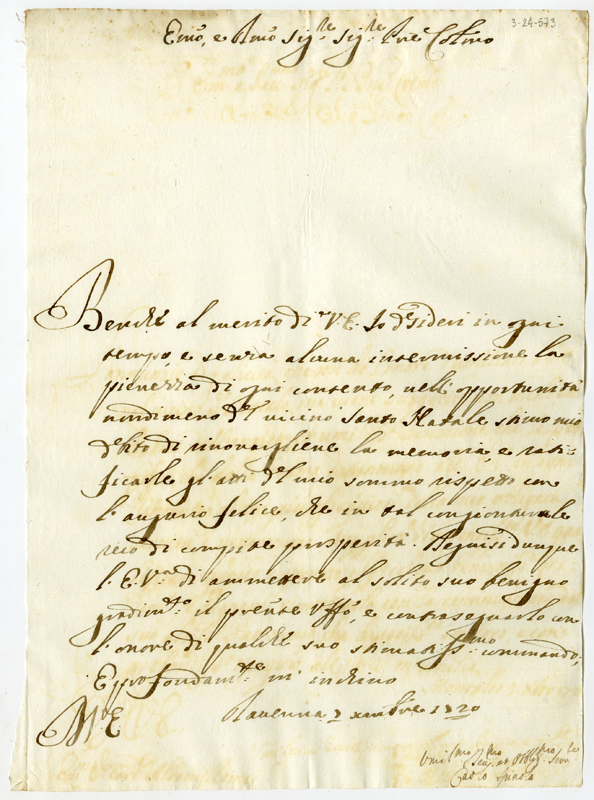 3-24-573
Emo, e Rmo Sigre Sigre Pne Colmo
Benche al merito di V.E. Io desideri in ogni
tempo, e senza alcuna intermissione la
pienezza di ogni contento, nell'opportunità
nondimeno del vicino Santo Natale stimo mio
debito di rinovargliene la memoria, e rati-
ficarle gl'atti del mio sommo rispetto con
l'augurio felice, che in tal congionturale
reco di compite prosperità. Seguisi dunque
l'E.Va di ammettere al solito suo benigno
gradimto il prēnte Uffo, e contrasegnarlo con
l'onore di qualche suo stimatissmo commando,
E profondamte m'inchino
Ravenna xmbre 1720
Umilmo
Carlo